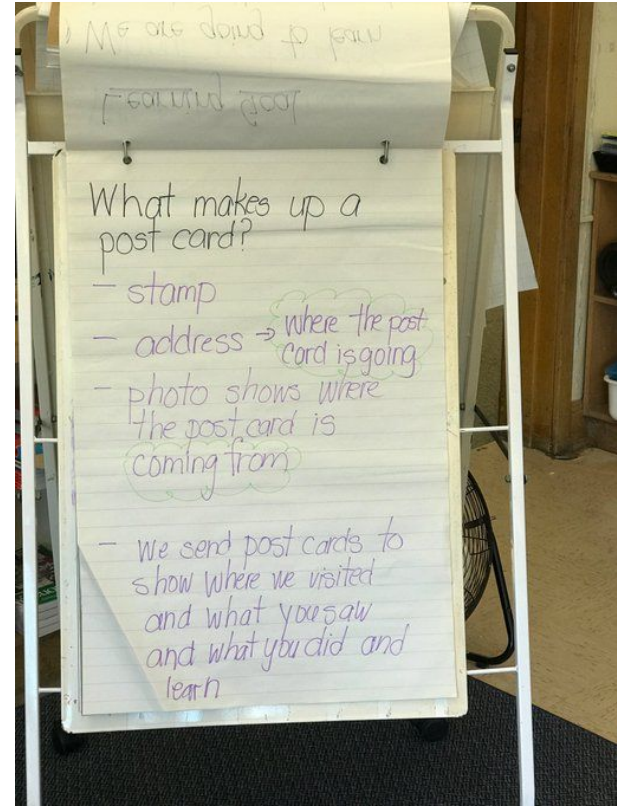 We are going to learn
Learning Goal
What makes up a
post card?
- stamp
- address → where the post
card is going
- photo shows where
the post card is
coming from
- We send post cards to
show where we visited
and what you saw
and what you did and
learn